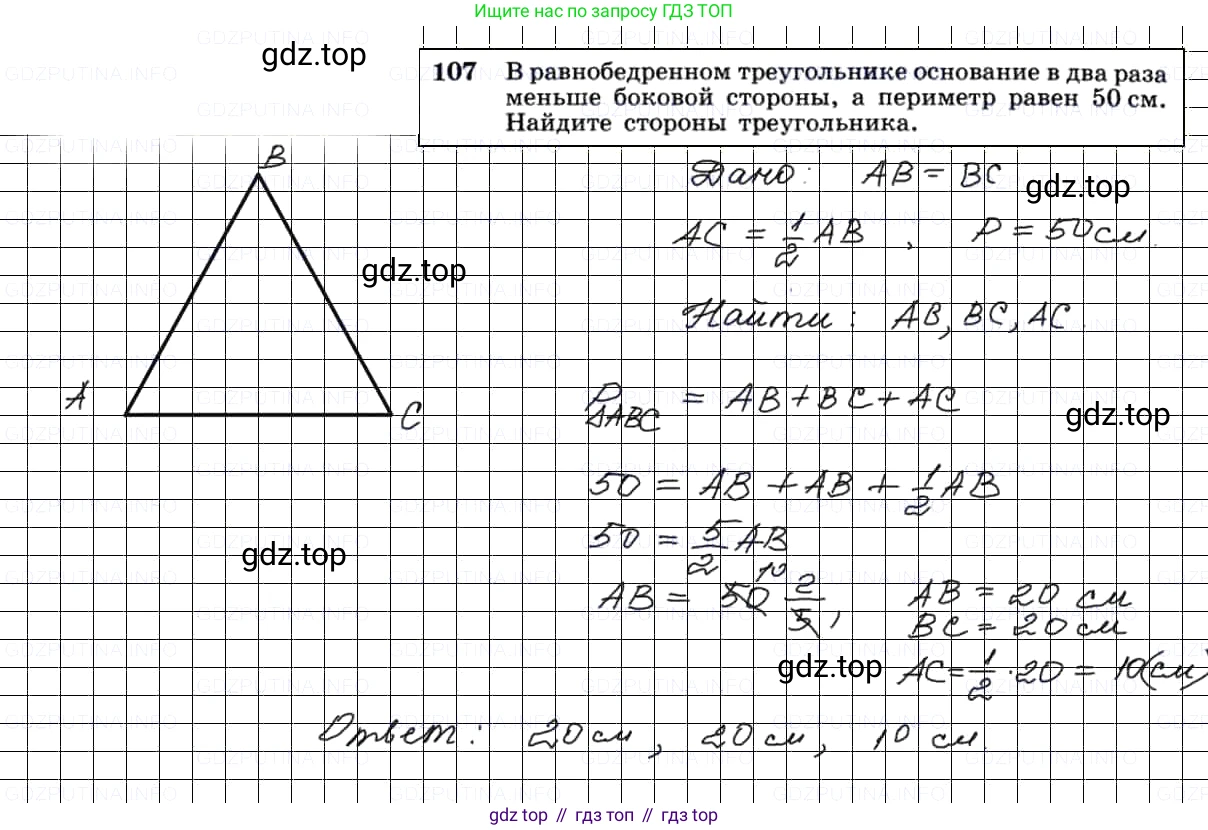 Ищите нас по запросу ГДЗ ТОП
gdz.top
107 В равнобедренном треугольнике основание в два раза
меньше боковой стороны, а периметр равен 50 см.
Найдите стороны треугольника.
B
Дано: AB = BC
gdz.top
AC = 1/2 AB , P = 50 см.
gdz.top
Найти: AB, BC, AC.
A
C
P△ABC = AB + BC + AC
gdz.top
50 = AB + AB + 1/2 AB
50 = 5/2 AB
gdz.top
10
AB = 50 2/5, AB = 20 см
BC = 20 см
gdz.top
AC = 1/2 · 20 = 10(см)
Ответ: 20 см, 20 см, 10 см.
gdz top // гдз топ // гдз top
GDZPUTINA.INFO